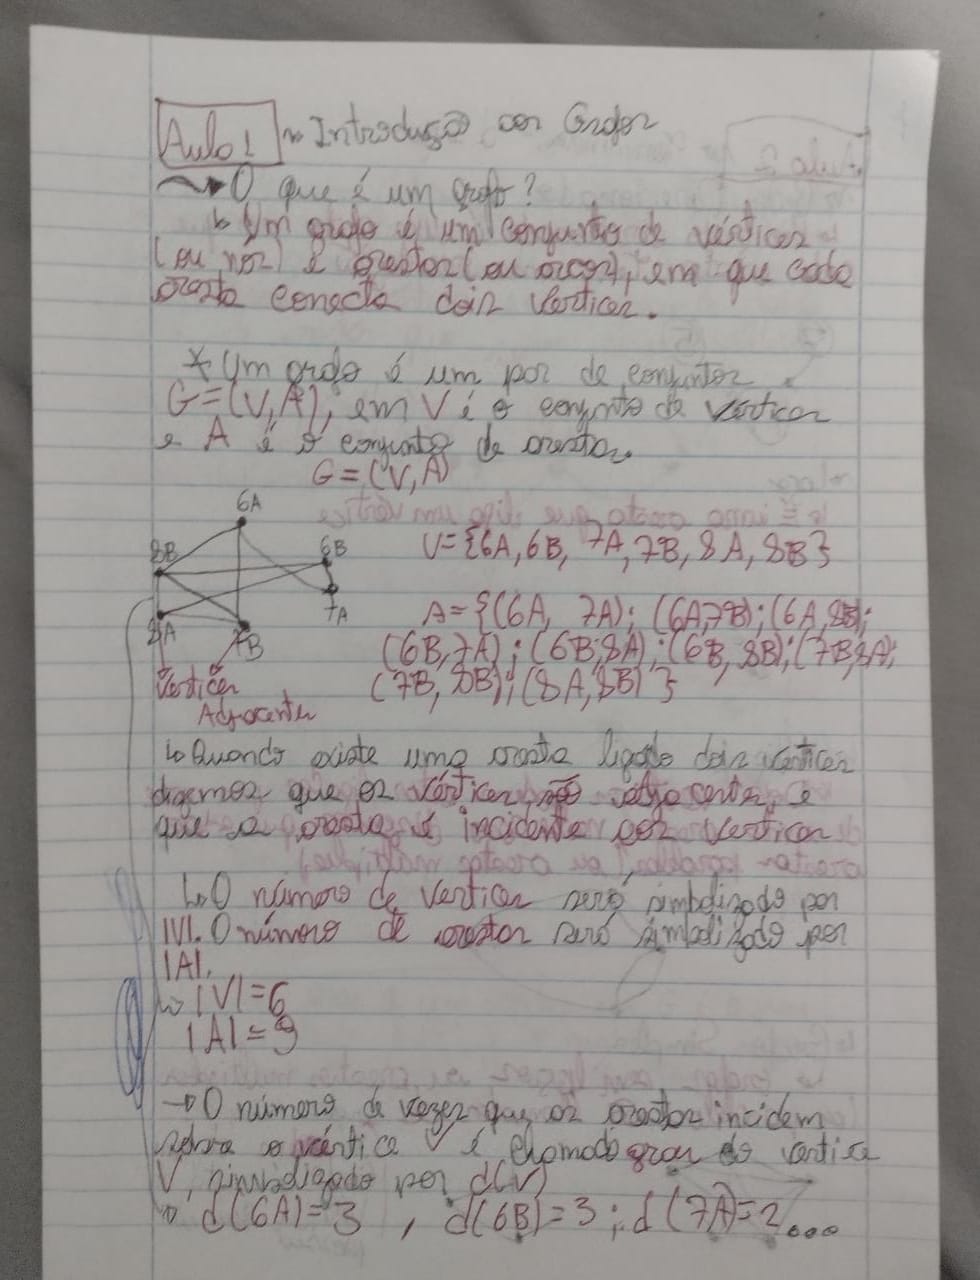 Aula 1 ~ Introdução aos Grafos
O que é um grafo?
↳ Um grafo é um conjunto de vértices
(ou nós) e arestas (ou arcos), em que cada
aresta conecta dois vertices.
* Um grafo é um par de conjuntos
G=(V,A), em V é o conjunto de vértices
e A é o conjunto de arestas.
G=(V,A)
6A
8B
6B
7A
8A
7B
V={6A,6B, 7A,7B, 8A, 8B}
A={(6A, 7A); (6A,7B);(6A,8B);
(6B,7A); (6B,8A); (6B, 8B);(7B,8A);
(7B, 8B);(8A,8B)}
Vertices
Adjacentes
↳ Quando existe uma aresta ligado dois vértices
dizemos que os vértices são adjacentes, e
que a aresta é incidente aos vertices
↳ O número de vertices será simbolizado por
|V|. O número de arestas será simbolizado por
|A|.
↳ |V|=6
|A|=9
→ O número de vezes que as arestas incidem
sobre o vértice V é chamado grau do vertice
V, simbolizado por d(V)
↳ d(6A)=3 , d(6B)=3 ; d(7A)=2...